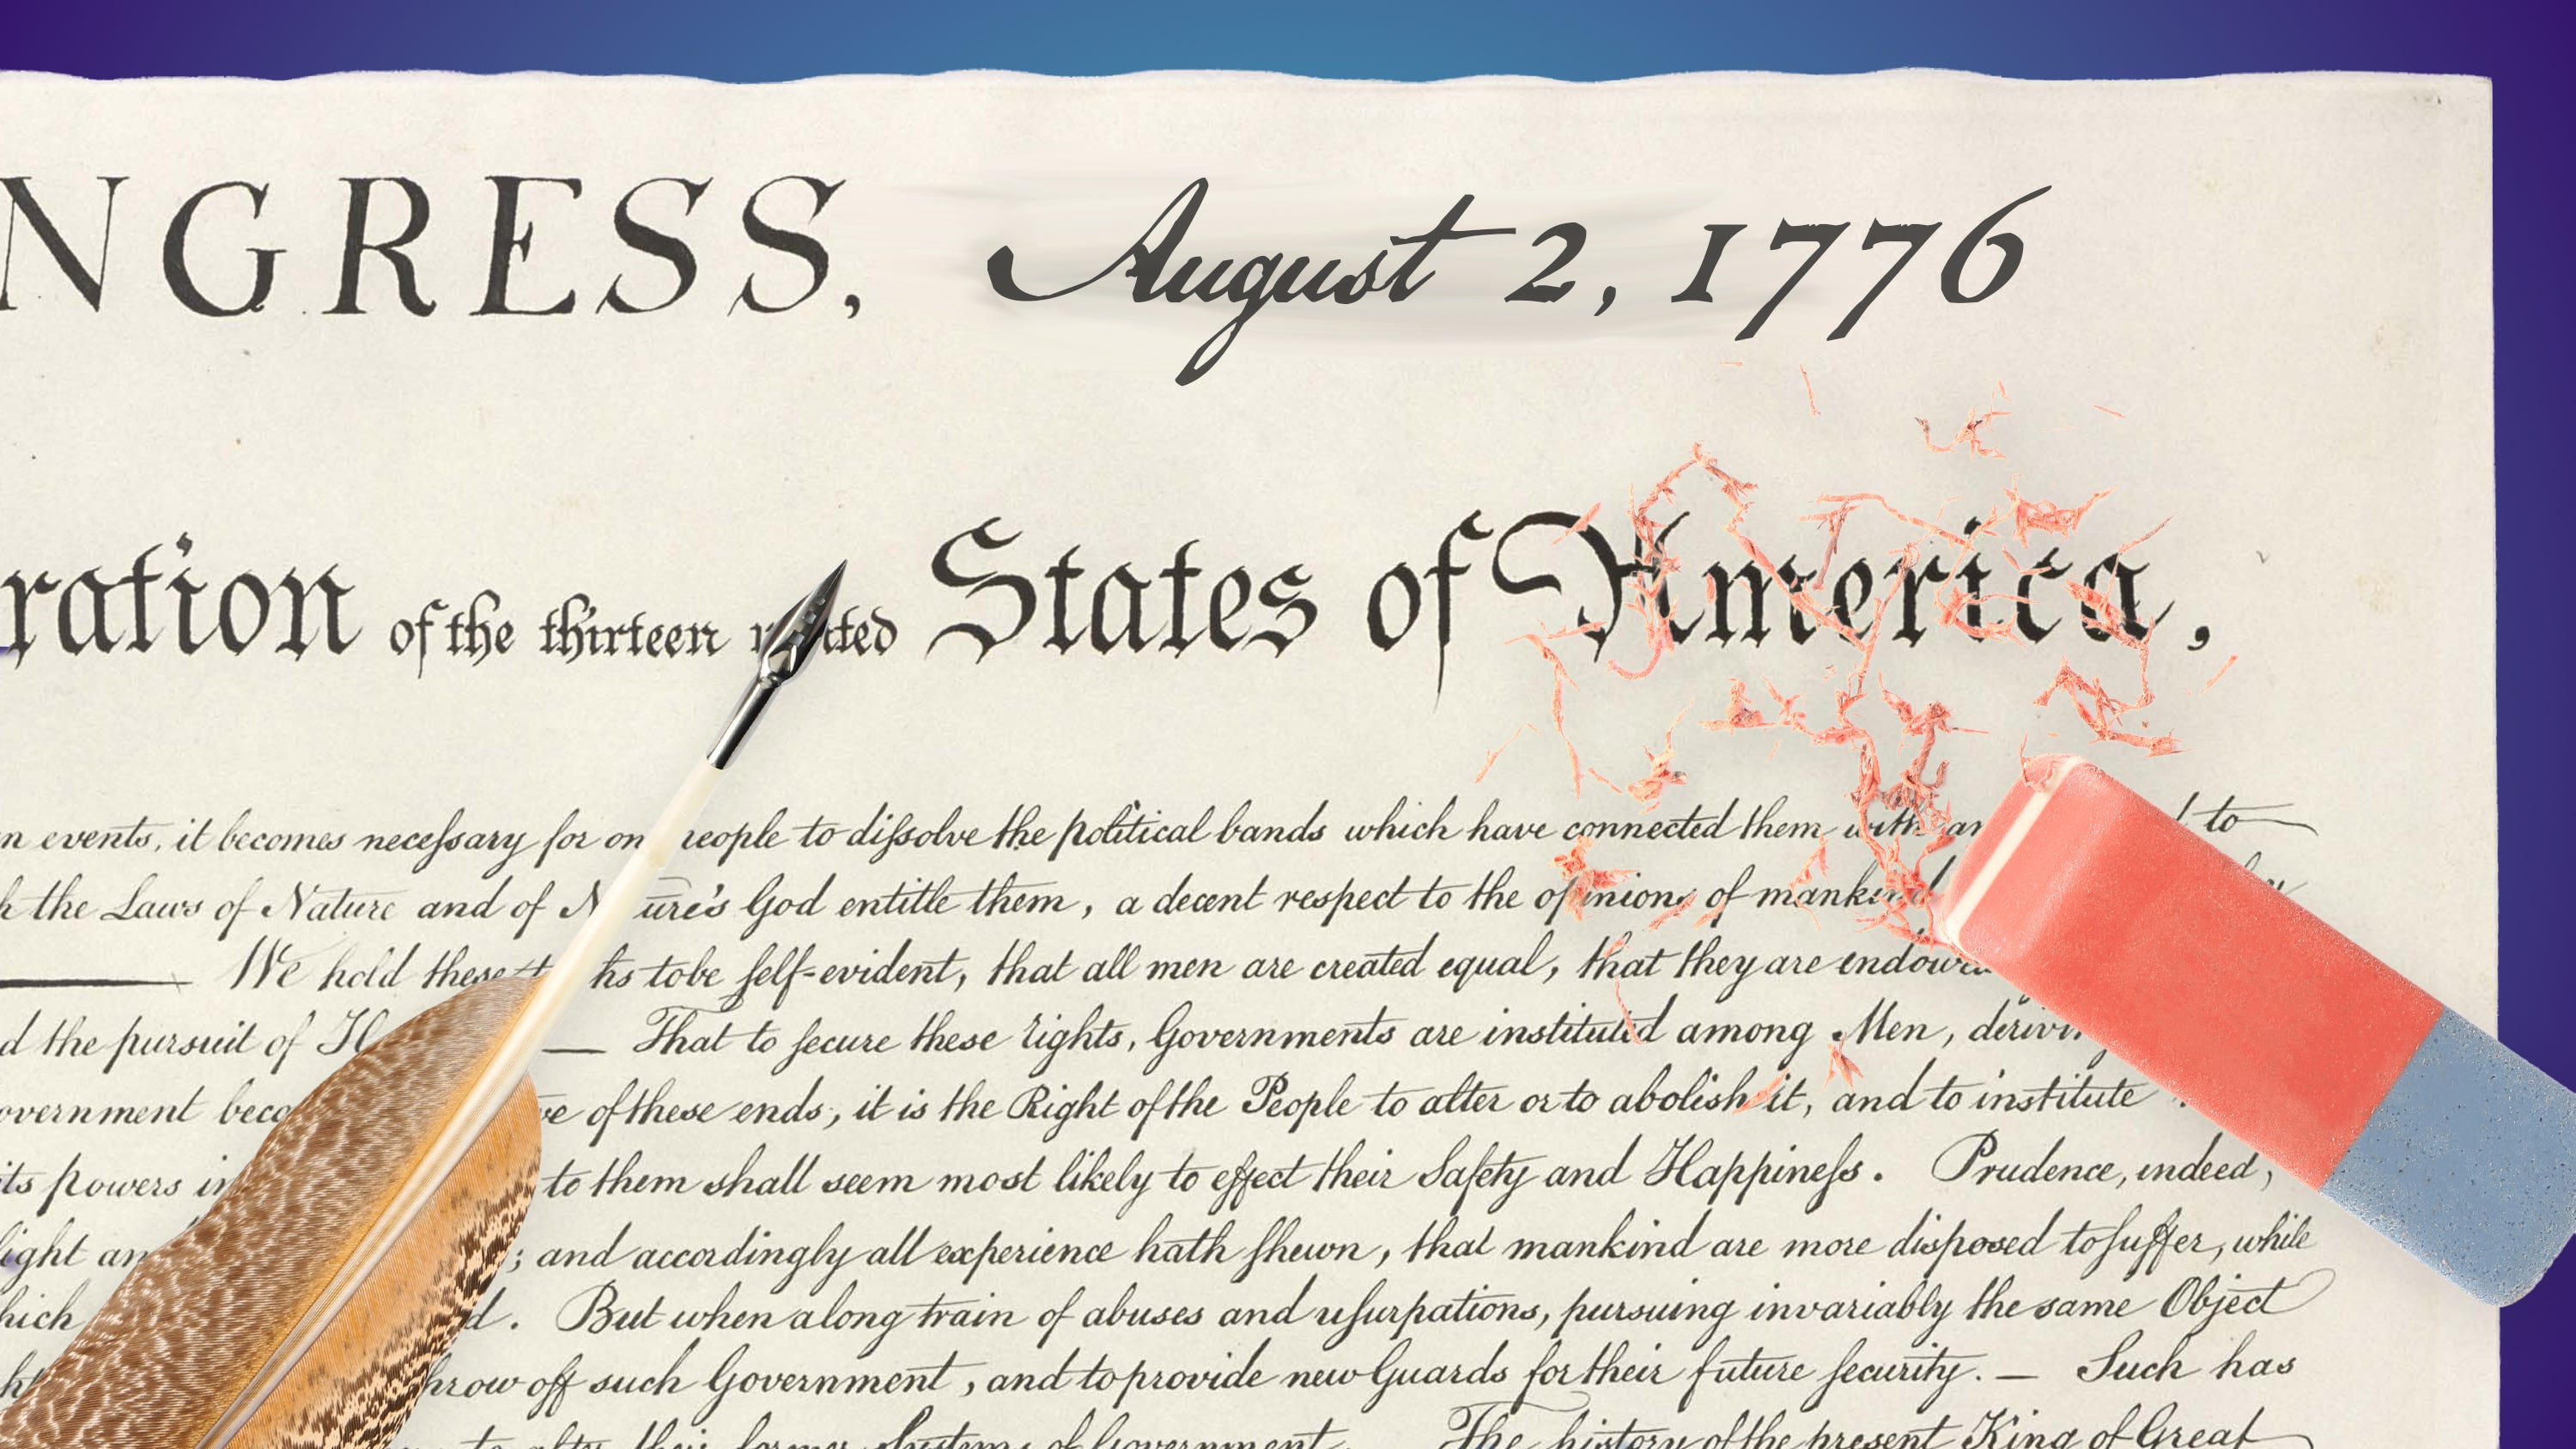 NGRESS, August 2, 1776
ration of the thirteen States of America,
n events, it becomes necessary for on people to dissolve the political bands which have connected them with an to
h the Laws of Nature and of Nature's God entitle them, a decent respect to the opinions of mankind
We hold these to be self-evident, that all men are created equal, that they are endowed
d the pursuit of H — That to secure these rights, Governments are instituted among Men, deriving
overnment beco ve of these ends, it is the Right of the People to alter or to abolish it, and to institute
its powers in to them shall seem most likely to effect their Safety and Happiness. Prudence, indeed,
light an ; and accordingly all experience hath shewn, that mankind are more disposed to suffer, while
hich d. But when a long train of abuses and usurpations, pursuing invariably the same Object
hrow off such Government, and to provide new Guards for their future security. — Such has
to alter their former Systems of Government. The history of the present King of Great